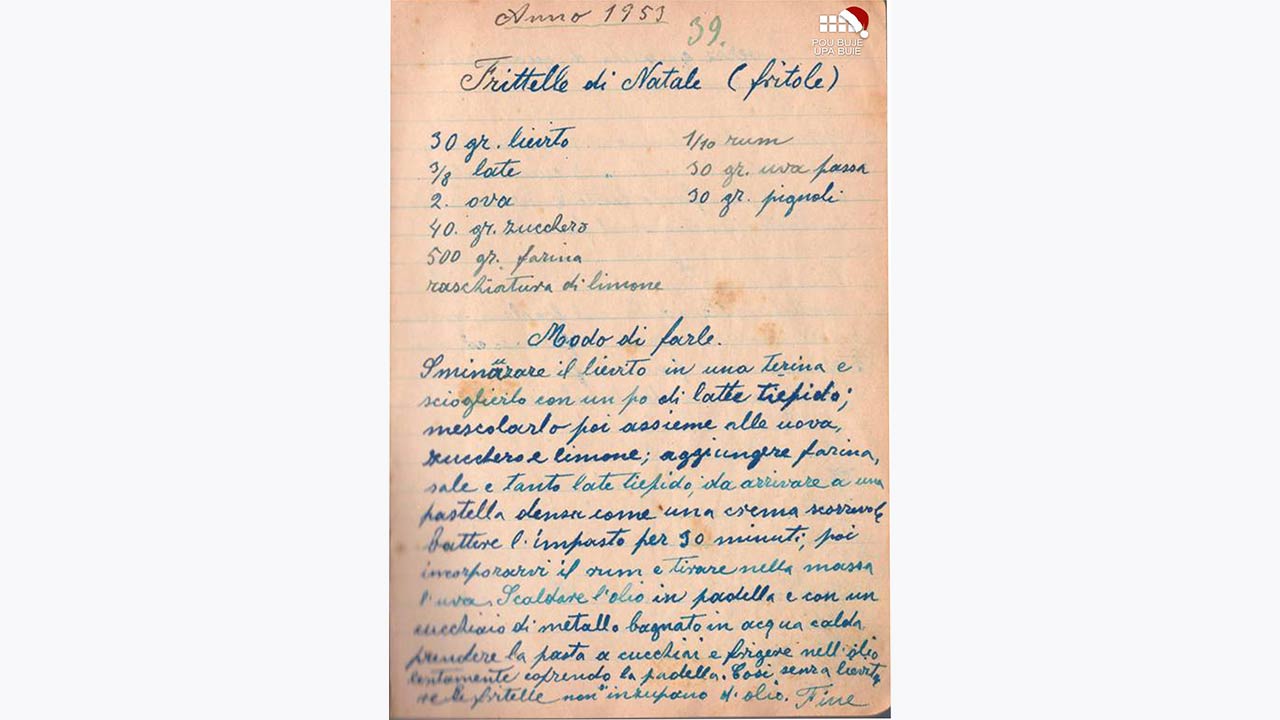 Anno 1953
39.
POU BUJE
UPA BUIE
Frittelle di Natale (fritole)
30 gr. lievito
3/8 late
2. ova
40. gr. zucchero
500 gr. farina
raschiatura di limone
1/10 rum
30 gr. uva passa
30 gr. pignoli
Modo di farle.
il lievito in una terina e
scioglierlo con un po di latte tiepido;
mescolarlo poi assieme alle uova,
zucchero e limone; aggiungere farina,
sale e tanto late tiepido, da arrivare a una
pastella densa come una crema scorrivole
battere l'impasto per 30 minuti, poi
incorporarvi il rum e tirare nella massa
l'uva. Scaldare l'olio in padella e con un
cucchiaio di metallo bagnato in acqua calda
prendere la pasta a cucchiai e frigere nell'olio
lentamente coprendo la padella. Cosi senza
fritelle non inzupano d'olio. Fine